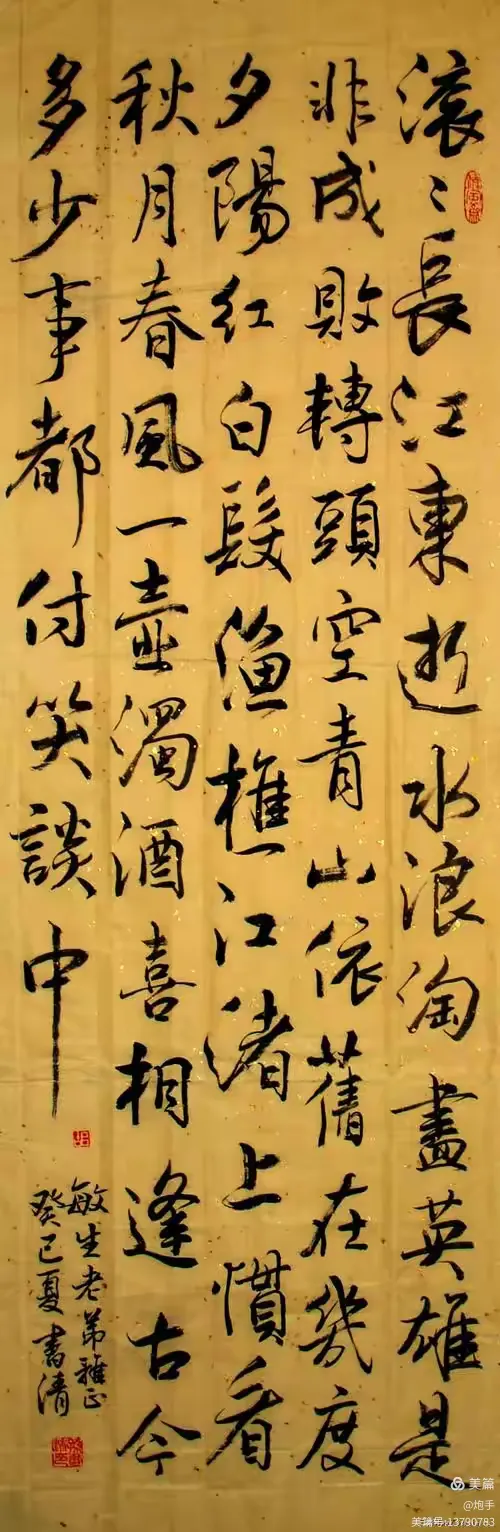 滚〻長江東逝水浪淘盡英雄是
非成敗轉頭空青山依舊在幾度
夕陽紅白髮漁樵江渚上慣看
秋月春風一壺濁酒喜相逢古今
多少事都付笑談中
敏生老弟雅正
癸巳夏書清
美篇
@炮手
美篇号:13790783